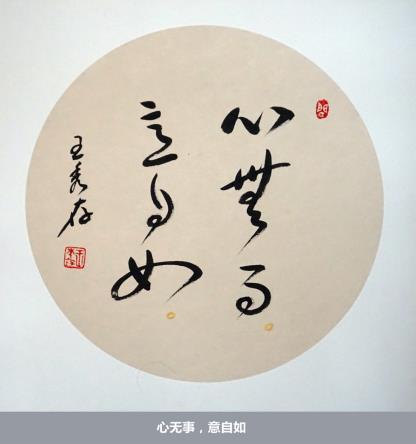 心無事
意自如
王秀存
心无事，意自如